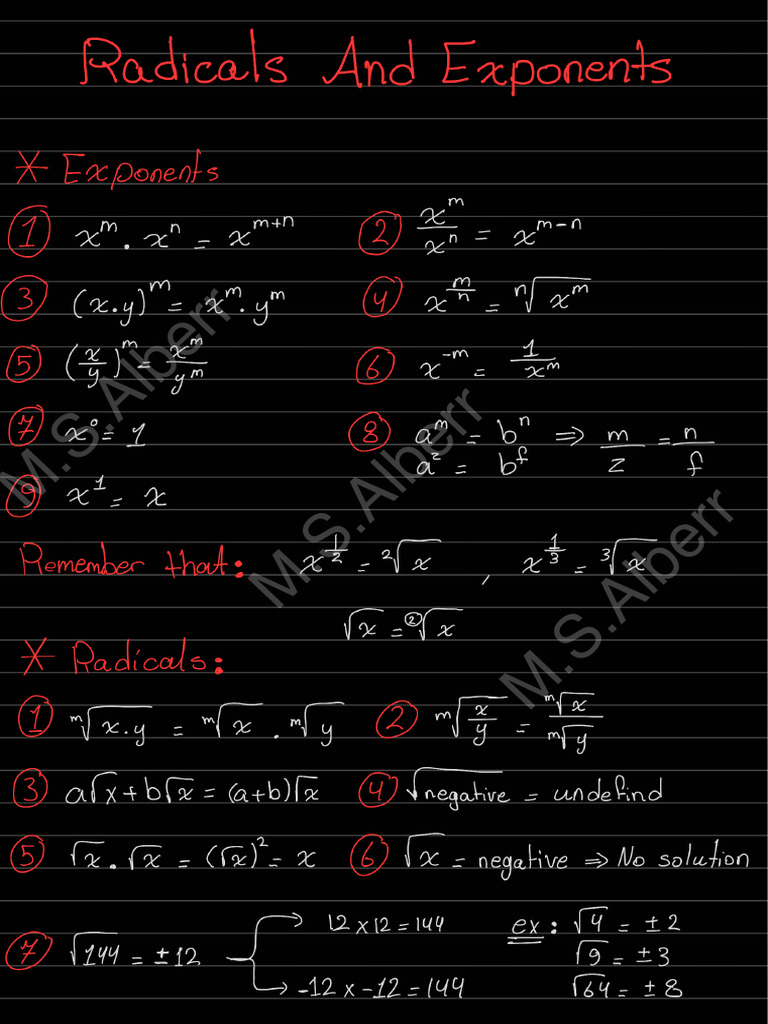 Radicals And Exponents
* Exponents
① xᵐ · xⁿ = xᵐ⁺ⁿ ② xᵐ/xⁿ = xᵐ⁻ⁿ
③ (x·y)ᵐ = xᵐ·yᵐ ④ x^(m/n) = ⁿ√(xᵐ)
⑤ (x/y)ᵐ = xᵐ/yᵐ ⑥ x⁻ᵐ = 1/xᵐ
⑦ x⁰ = 1 ⑧ aᵐ = bⁿ ⇒ m/z = n/f
aᶻ = bᶠ
⑨ x¹ = x
Remember that: x^(1/2) = ²√x , x^(1/3) = ³√x
√x = ②√x
* Radicals:
① ᵐ√(x·y) = ᵐ√x · ᵐ√y ② ᵐ√(x/y) = ᵐ√x/ᵐ√y
③ a√x + b√x = (a+b)√x ④ √negative = undefind
⑤ √x · √x = (√x)² = x ⑥ √x = negative ⇒ No solution
⑦ √144 = ±12 → 12 × 12 = 144 ex: √4 = ±2
√9 = ±3
→ -12 × -12 = 144 √64 = ±8
M.S.Alberr
M.S.Alberr
M.S.Alberr